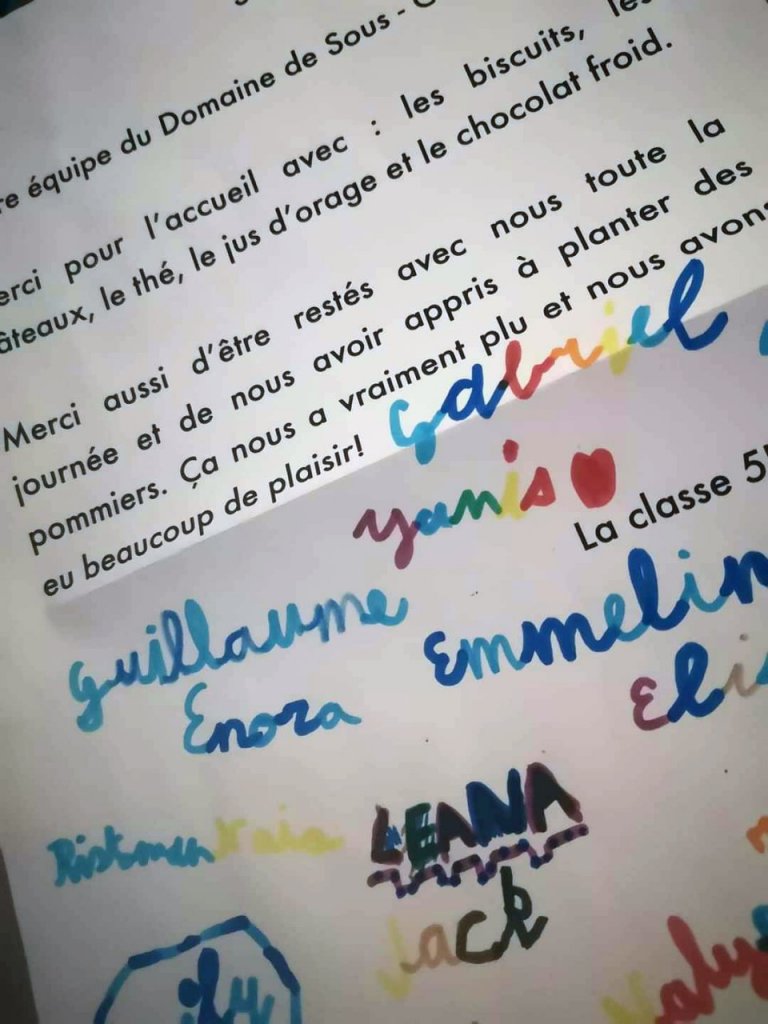 équipe du Domaine de Sous -
pour l'accueil avec : les biscuits,
le thé, le jus d'orage et le chocolat froid.
Merci aussi d'être restés avec nous toute la
journée et de nous avoir appris à planter des
pommiers. Ça nous a vraiment plu et nous avons
eu beaucoup de plaisir!
Gabriel
yanis
La classe
guillaume
Emmelin
Enora
LEANA
Jack